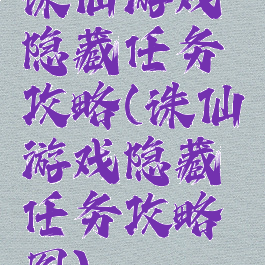 诛仙游戏
隐藏任务
攻略(诛仙
游戏隐藏
任务攻略
图)